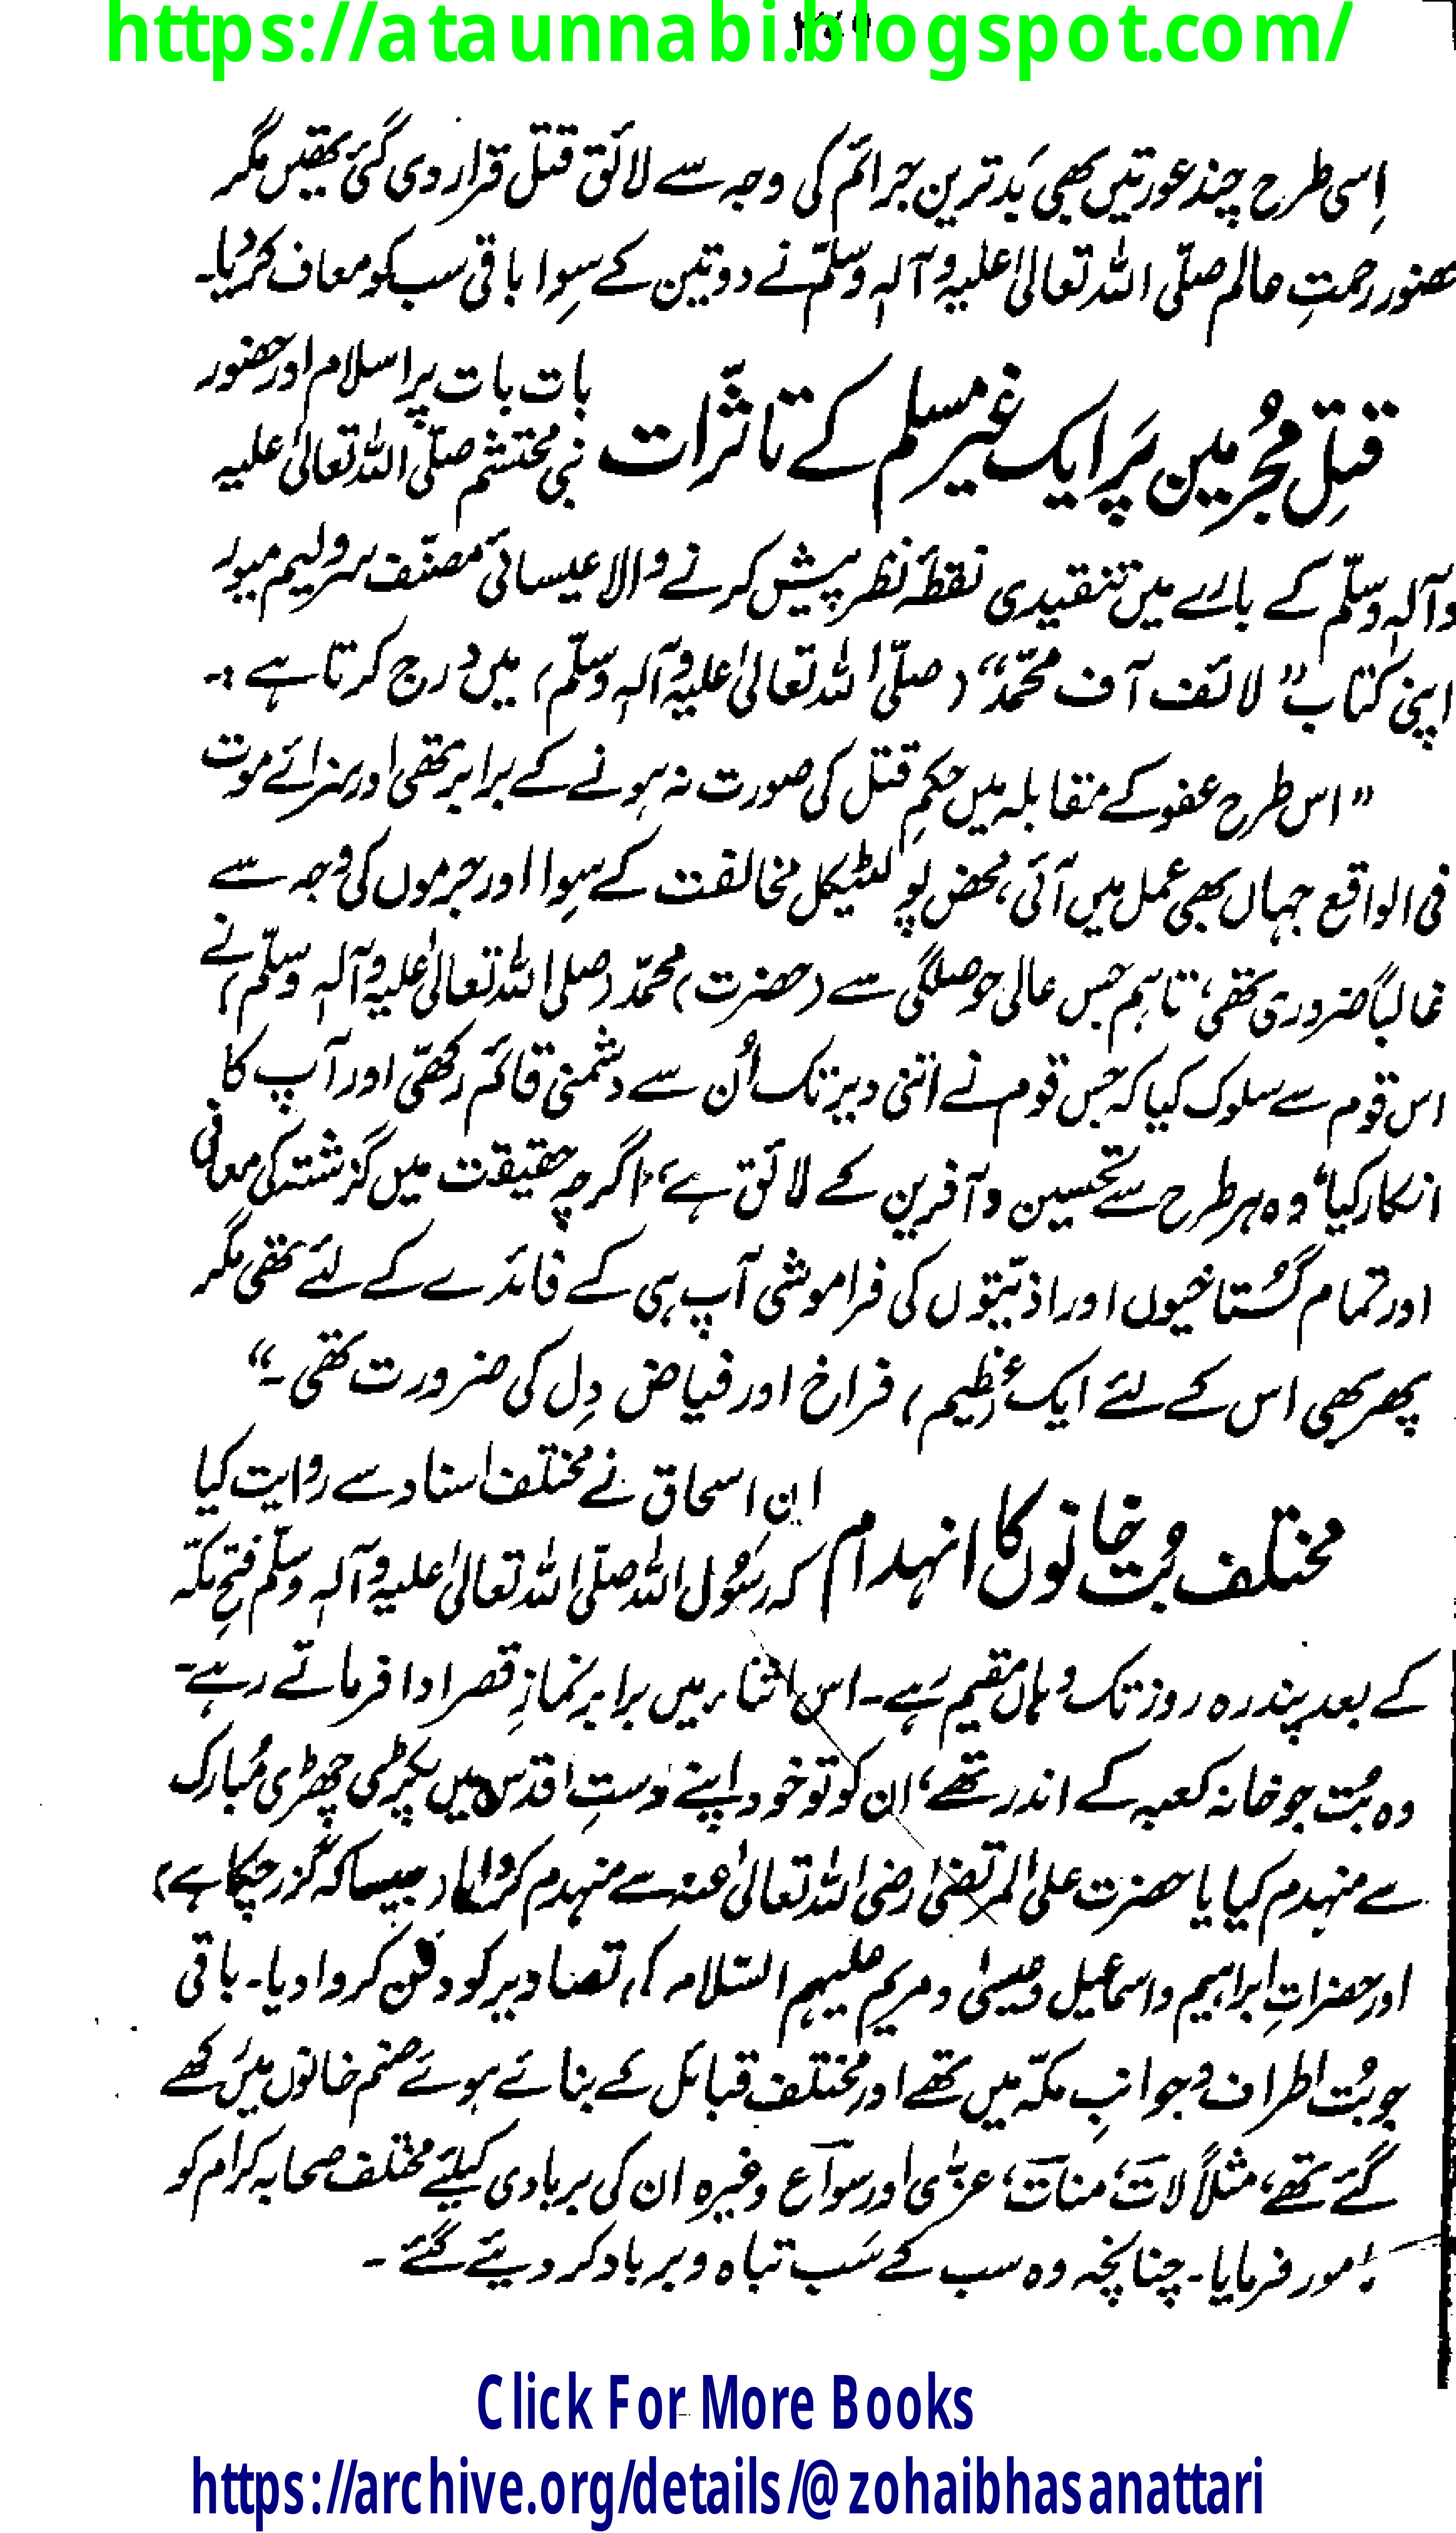 https://ataunnabi.blogspot.com/
اِسی طرح چند عورتیں بھی بَدترین جرائم کی وجہ سے لائق قتل قرار دی گئی تھیں مگر
حضور رحمتِ عالم صلّی اللہ تعالیٰ علیہ وآلہٖ وسلّم نے دو تین کے سِوا باقی سب کو معاف کر دیا۔
قتلِ مجُرمین پَر ایک غیر مسلم کے تاثّرات
بات بات پر اسلام اور حضور
نبی محتشم صلّی اللہ تعالیٰ علیہ
وآلہٖ وسلّم کے بارے میں تنقیدی نقطۂ نظر پیش کرنے والا عیسائی مصنّف سرولیم میور
اپنی کتاب ”لائف آف محمّد“ (صلّی اللہ تعالیٰ علیہ وآلہٖ وسلّم) میں درج کرتا ہے :۔
”اس طرح عفو کے مقابلہ میں حکمِ قتل کی صورت نہ ہونے کے برابر تھی اور سزائے موت
فی الواقع جہاں بھی عمل میں آئی، محض پولٹیکل مخالفت کے سِوا اور جرموں کی وجہ سے
غالباً ضروری تھی، تاہم جس عالی حوصلگی سے (حضرت) محمّد (صلی اللہ تعالیٰ علیہ وآلہٖ وسلّم) نے
اس قوم سے سلوک کیا کہ جس قوم نے اتنی دیر تک اُن سے دشمنی قائم رکھّی اور آپ کا
انکار کیا، وہ ہر طرح سے تحسین و آفرین کے لائق ہے، اگرچہ حقیقت میں گزشتہ کی معافی
اور تمام گُستاخیوں اور اذیّتوں کی فراموشی آپ ہی کے فائدے کے لئے تھی مگر
پھر بھی اس کے لئے ایک عظیم، فراخ اور فیاض دِل کی ضرورت تھی۔“
مختلف بُت خانوں کا انہدام
ابن اسحاق نے مختلف اسناد سے روایت کیا
کہ رسُول اللہ صلّی اللہ تعالیٰ علیہ وآلہٖ وسلّم فتحِ مکّہ
کے بعد پندرہ روز تک وہاں مقیم رہے۔ اس اثناء میں برابر نمازِ قصر ادا فرماتے رہے۔
وہ بُت جو خانہ کعبہ کے اندر تھے، ان کو تو خود اپنے دستِ اقدس میں پکڑی چھڑی مُبارک
سے منہدم کیا یا حضرت علی المرتضیٰ رضی اللہ تعالیٰ عنہ سے منہدم کروایا (جیسا کہ گزر چکا ہے)
اور حضراتِ ابراہیم و اسماعیل و عیسیٰ و مریم علیہم السّلام کی تصاویر کو دفن کروا دیا۔ باقی
جو بُت اطراف و جوانبِ مکّہ میں تھے اور مختلف قبائل کے بنائے ہوئے صنم خانوں میں رکھے
گئے تھے، مثلاً لات، منات، عزّٰی اور سواع وغیرہ ان کی بربادی کیلئے مختلف صحابہ کرام کو
مامور فرمایا۔ چنانچہ وہ سب کے سَب تباہ و برباد کر دیئے گئے ۔
Click For More Books
https://archive.org/details/@zohaibhasanattari